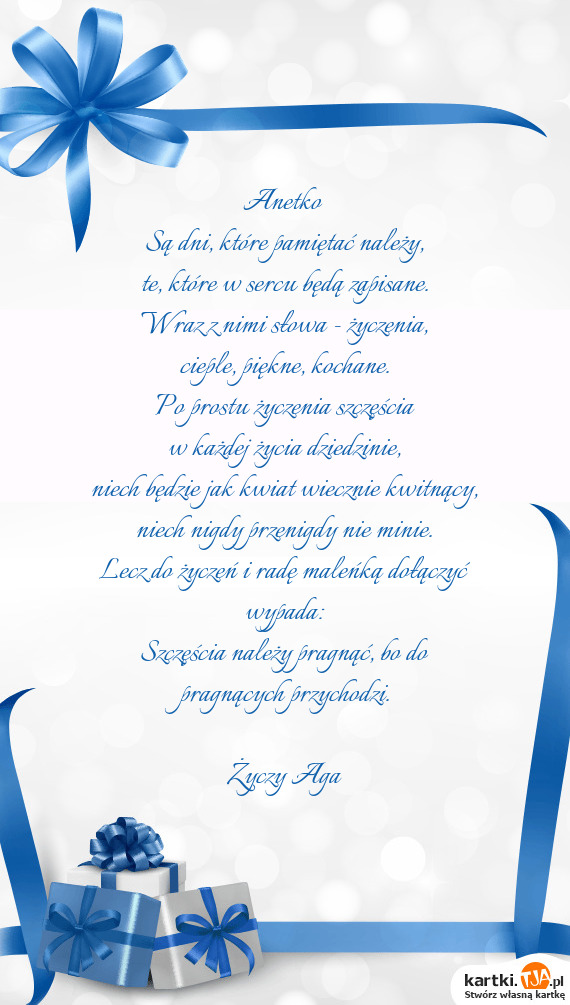 Anetko
Są dni, które pamiętać należy,
te, które w sercu będą zapisane.
Wraz z nimi słowa - życzenia,
ciepłe, piękne, kochane.
Po prostu życzenia szczęścia
w każdej życia dziedzinie,
niech będzie jak kwiat wiecznie kwitnący,
niech nigdy przenigdy nie minie.
Lecz do życzeń i radę maleńką dołączyć
wypada:
Szczęścia należy pragnąć, bo do
pragnących przychodzi.
Życzy Aga
kartki.TJA.pl
Stwórz własną kartkę